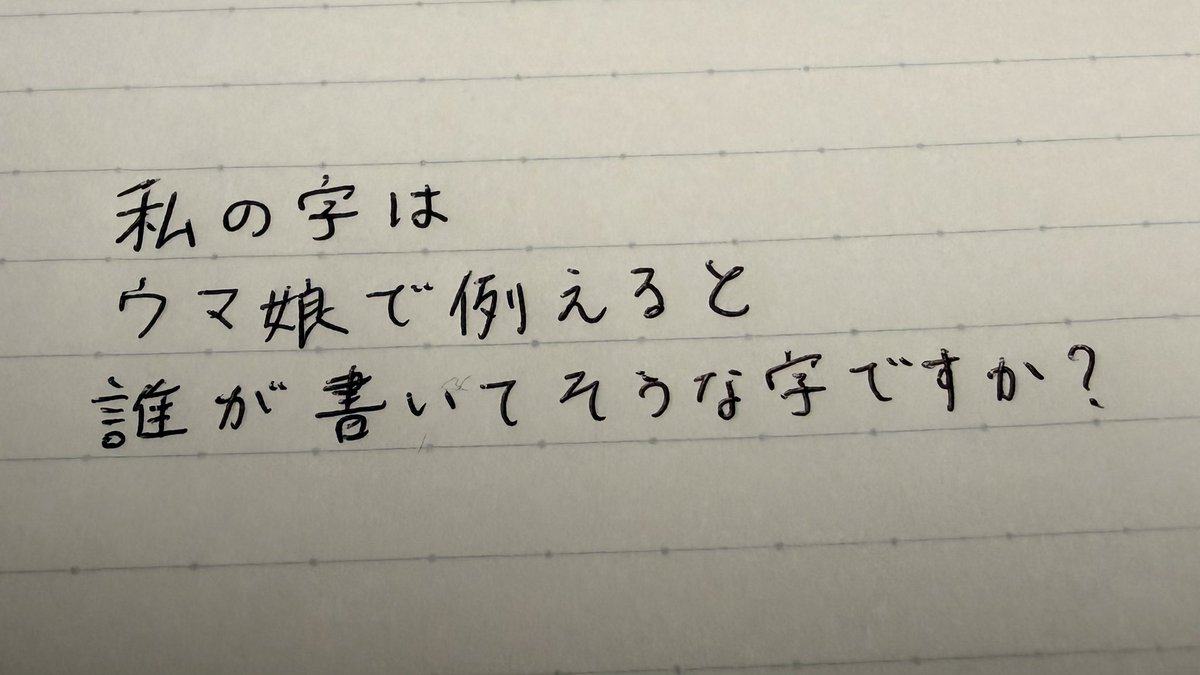 私の字は
ウマ娘で例えると
誰が書いてそうな字ですか?